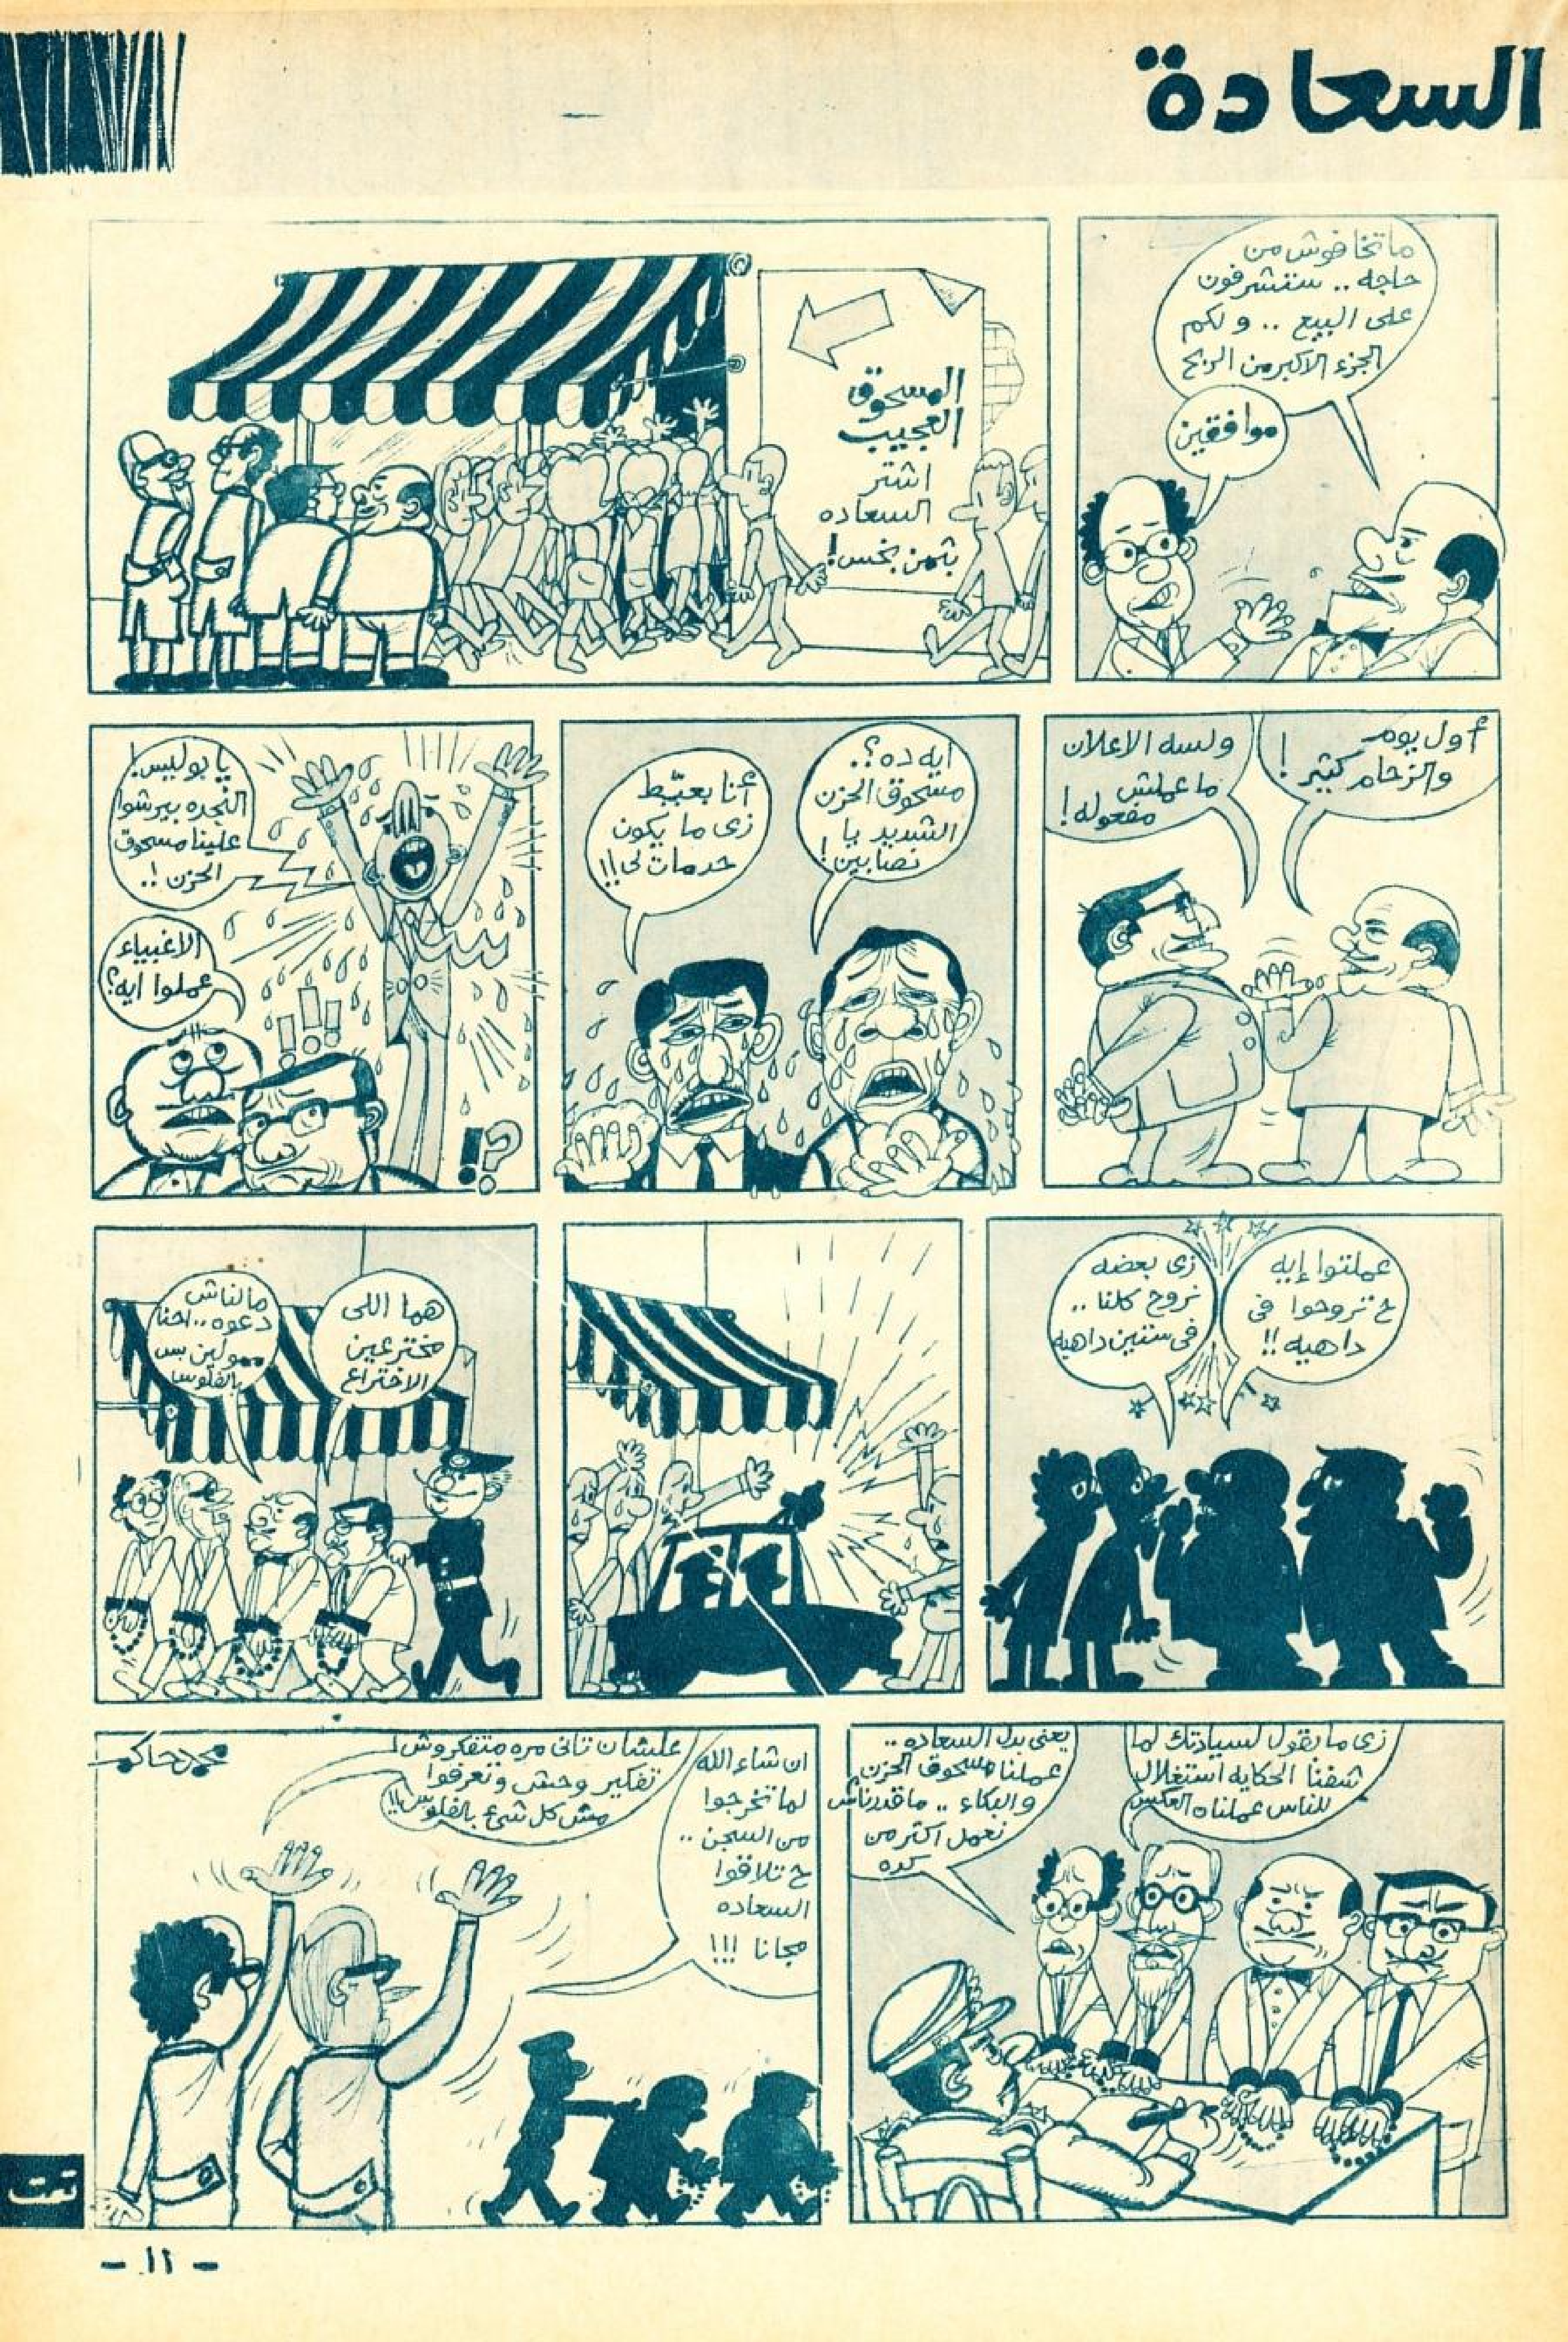 السعادة
ما تخافوش من
حاجه .. ستشرفون
على البيع .. ولكم
الجزء الاكبر من الربح
موافقين
المسحوق
العجيب
اشتر
السعاده
بثمن بخس!
أول يوم
والزحام كتير!
ولسه الاعلان
ما عملش
مفعوله!
ايه ده؟..
مسحوق الحزن
الشديد يا
نصابين!
أنا بعيّط
زى ما يكون
حد مات لى!!
يا بوليس!
النجده بيرشوا
علينا مسحوق
الحزن!..
الاغبياء
عملوا ايه؟
!؟
عملتوا إيه
ح تروحوا فى
داهيه!!
زى بعضه
نروح كلنا ..
فى ستين داهيه
هما اللى
مخترعين
الاختراع
مالناش
دعوه .. احنا
ممولين بس
بالفلوس
زى ما بقول لسيادتك لما
شفنا الحكايه استغلال
للناس عملناه العكس
يعنى بدل السعاده ..
عملنا مسحوق الحزن
والبكاء .. ماقدرناش
نعمل اكتر من
كده
ان شاء الله
لما تخرجوا
من السجن ..
ح تلاقوا
السعاده
مجانا !!!
علشان تانى مره متفكروش
تفكير وحش وتعرفوا
مش كل شئ بالفلوس!!
محمد حاكم
تمت
- ١١ -